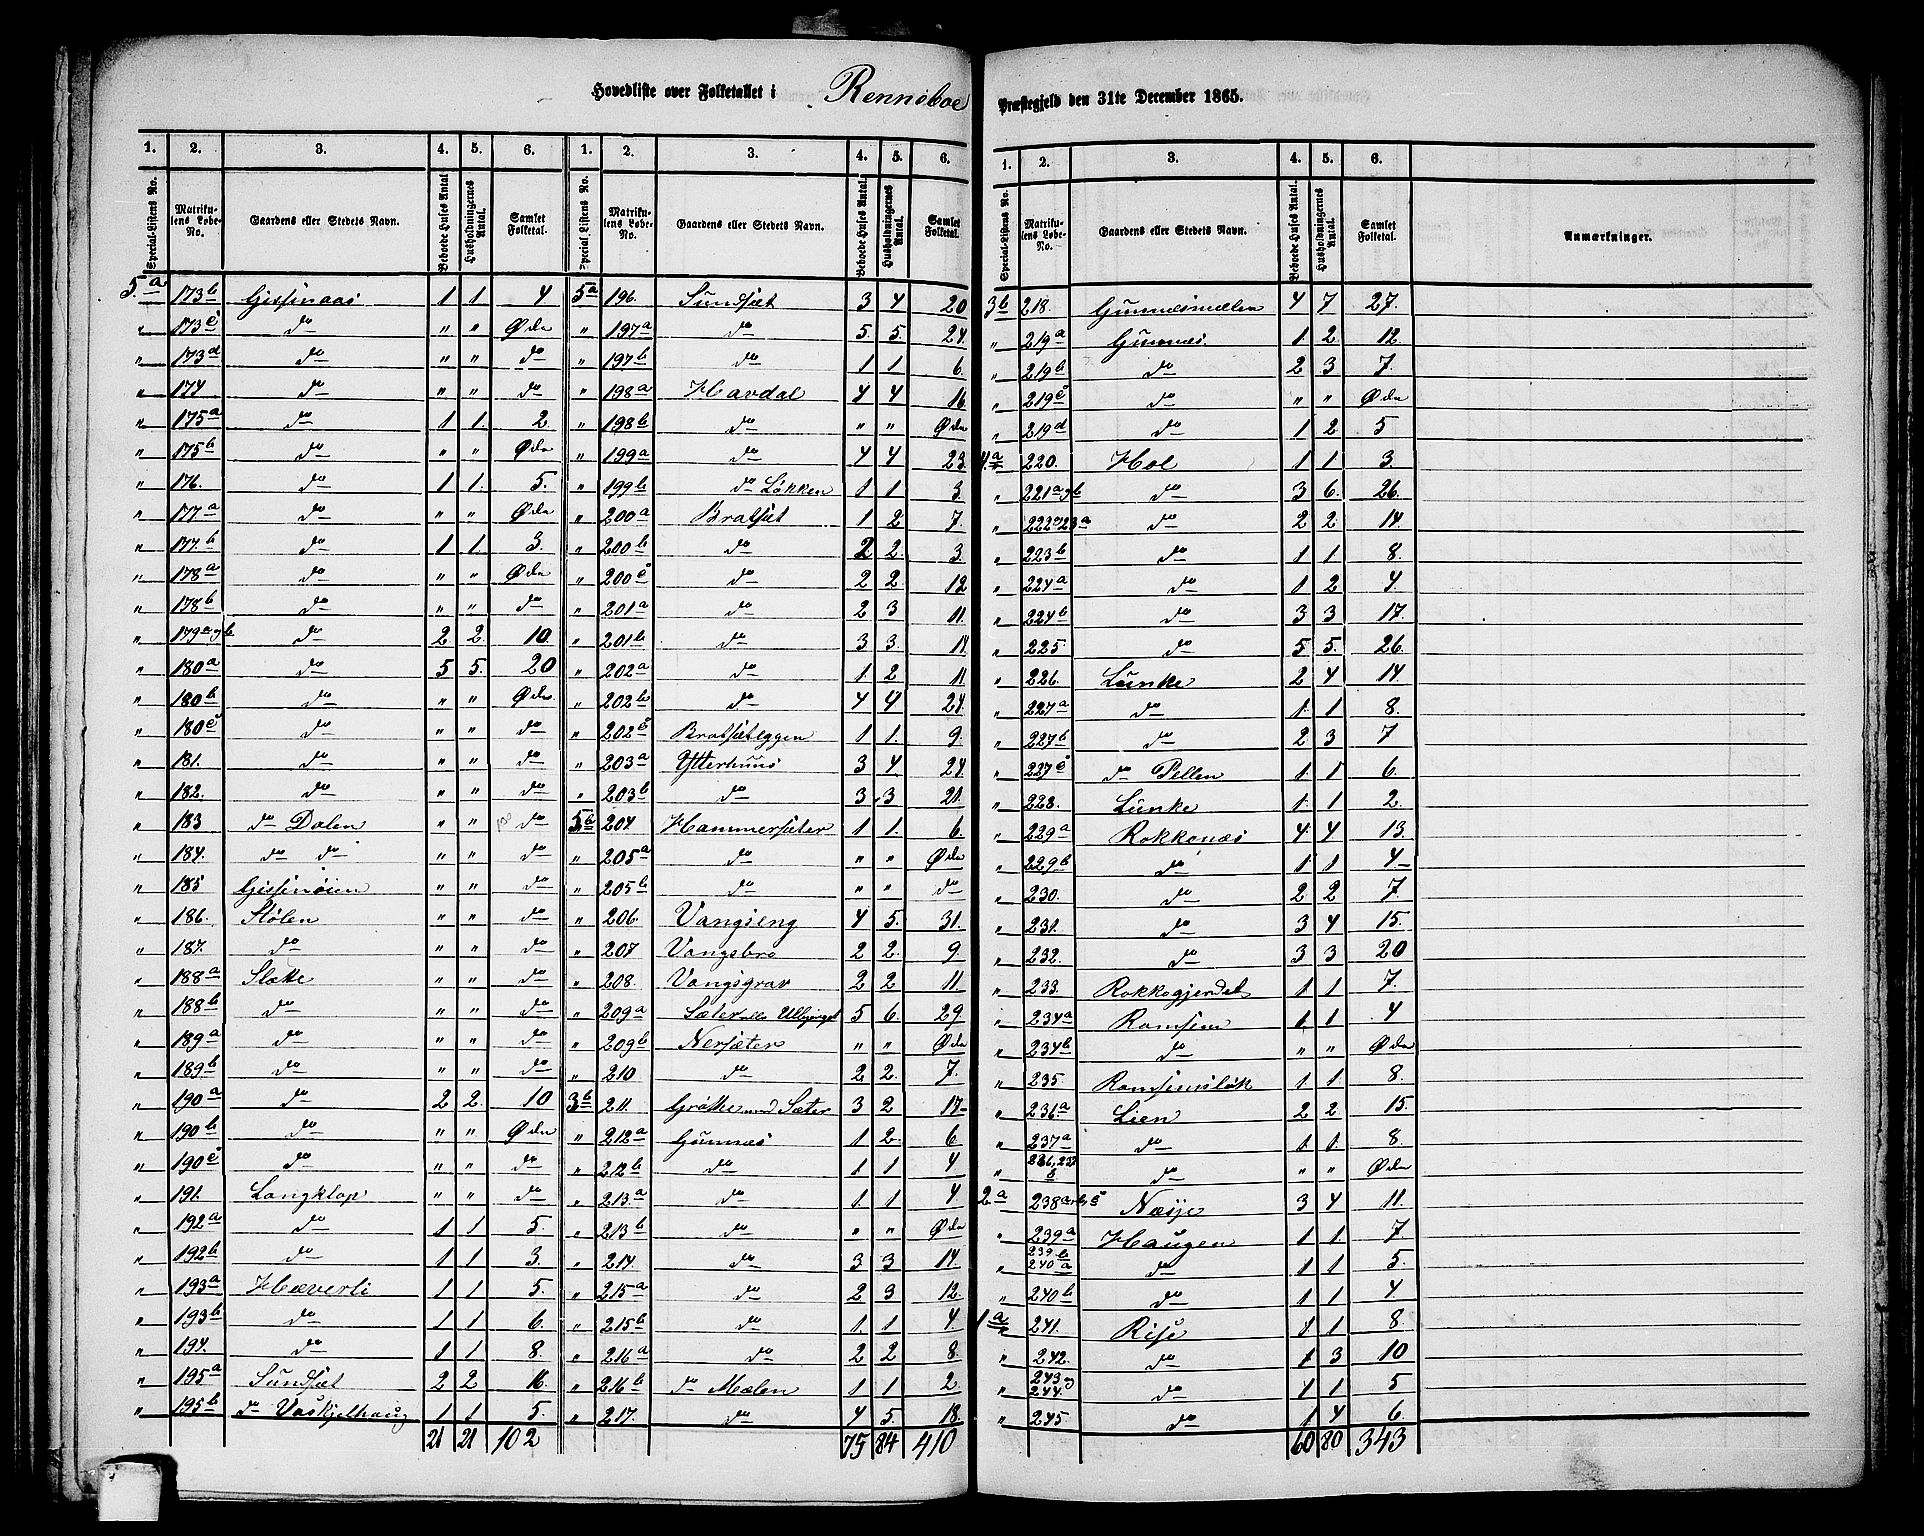 Hovedliste over Folketallet i Renneboe Præstegjeld den 31te December 1865.
1. 2. 3. 4. 5. 6. 1. 2. 3. 4. 5. 6.
Special-Listens No. Matrikulens Løbe-No. Gaardens eller Stedets Navn. Beboede Huses Antal Husholdningernes Antal. Samlet Folketal. Special Listens No. Matrikulens Løbe-No. Gaardens eller Stedets Navn. Beboede Huses Antal. Husholdningernes Antal. Samlet Folketal.
5a 173b Gissinaas 1 1 4 5a 196. Sundsæt 3 4 20
" 173c do " " Øde " 197a do 5. 5. 24.
" 173d do " " do " 197b do 1 1 6.
" 174 do " " do " 198a Havdal 4 4 16
" 175a do 1 1. 2. " 198b do " " Øde
" 175b do " " Øde " 199a do 4 4 23.
" 176. do 1 1. 5. " 199b do Løkken 1 1 3.
" 177a do " " Øde " 200a Bratsæt 1 2 7.
" 177b do 1 1. 3. " 200b do 2 2. 3.
" 178a do " " Øde " 200c do 2 2. 12
" 178b do " " do " 201a do 2 3 11.
" 179a og b do 2. 2. 10. " 201b do 3 3. 14.
" 180a do 5 5. 20 " 202a do 1. 2 11
" 180b do " " Øde " 202b do 4 4 24.
" 180c do " " do " 202c Bratsæteggen 1 1. 9.
" 181. do " " do " 203a Ytterhuus 3 4 24.
" 182. do " " do " 203b do 3. 3 21.
" 183 do Dalen " " do 5b 204. Hammersæter 1 1. 6.
" 184. do do " " do " 205a do " " Øde
" 185 Gissinøien " " do " 205b do " " do
" 186. Stølen " " do " 206. Vangseng 4 5. 31.
" 187. do " " do " 207 Vangsbro 2 2. 9.
" 188a Slætte " " do " 208. Vangsgrav 2 2 11
" 188b do " " do " 209a Sæter eller 5 6. 29
" 189a do " " do " 209b Nersæter " " Øde
" 189b do " " do " 210 do 2 2. 7.
" 190a do 2 2. 10 3b 211. Grøtte med Sæter 3 2 17
" 190b do " " Øde " 212a Gunnæs 1 2. 6
" 190c do " " do " 212b do 1 1 4
" 191. Langklop " " do " 213a do 1. 1 4.
" 192a do 1 1 5. " 213b do " " Øde
" 192b do 1 1 3. " 214. do 3 3 14.
" 193a Hæverli 1 1 5. " 215a do 2 3 12.
" 193b do 1 1 6. " 215b do 1. 1 4.
" 194. do 1 1 8. " 216a do 2 2 8.
" 195a Sundsæt 2 2 16. " 216b do Mælen 1 1 2
" 195b do Vaskjelhaug 1 1 5. " 217. do 4 5. 18.
21 21 102 75 84 410
1. 2. 3. 4. 5. 6.
Special-Listens No. Matrikulens Løbe-No. Gaardens eller Stedets Navn. Beboede Huses Antal. Husholdningernes Antal. Samlet Folketal. Anmærkninger.
3b 218. Gunnæsmælen 4 7 27.
" 219a Gunnæs. 1. 2 12.
" 219b do 2 3 7.
" 219c do " " Øde
" 219d do 1 2 5
4a 220. Hol 1 1 3.
" 221a og b do 3 6. 26.
" 222 og 23a do 2 2 14.
" 223b do 1 1 8.
" 224a do 1 2 4.
" 224b do 3 3 17.
" 225. do 5 5. 26
" 226. Lunke 2 4 14
" 227a do 1. 1 8.
" 227b do 2 3 7
" 227c do Pellen 1. 1 6.
" 228. Lunke 1. 1 2.
" 229a Rokkonæs 4. 4 13.
" 229b do 1 1 4
" 230. do 2 2 7.
" 231. do 3 4 15.
" 232. do 3 3 20
" 233. Rokkogjerdet 1 1 7.
" 234a Ramsem 1. 1 4
" 234b do " " Øde
" 235. 1. 1. 8.
" 236.a Lien 2 2 15.
" 237a do 1. 1. 8.
" 236, 237 b do " " Øde
2a 238a Næsje 3 4 11.
" 239a Haugen 1 1 7.
" 239b 240a do 1 1 5.
" 240b do 1 1 4.
1a 241. Rise 1 1 8.
" 242. do 1 3 10
" 243 og 244. do 1 1 5
" 245 do 1 4 6.
60 80 343